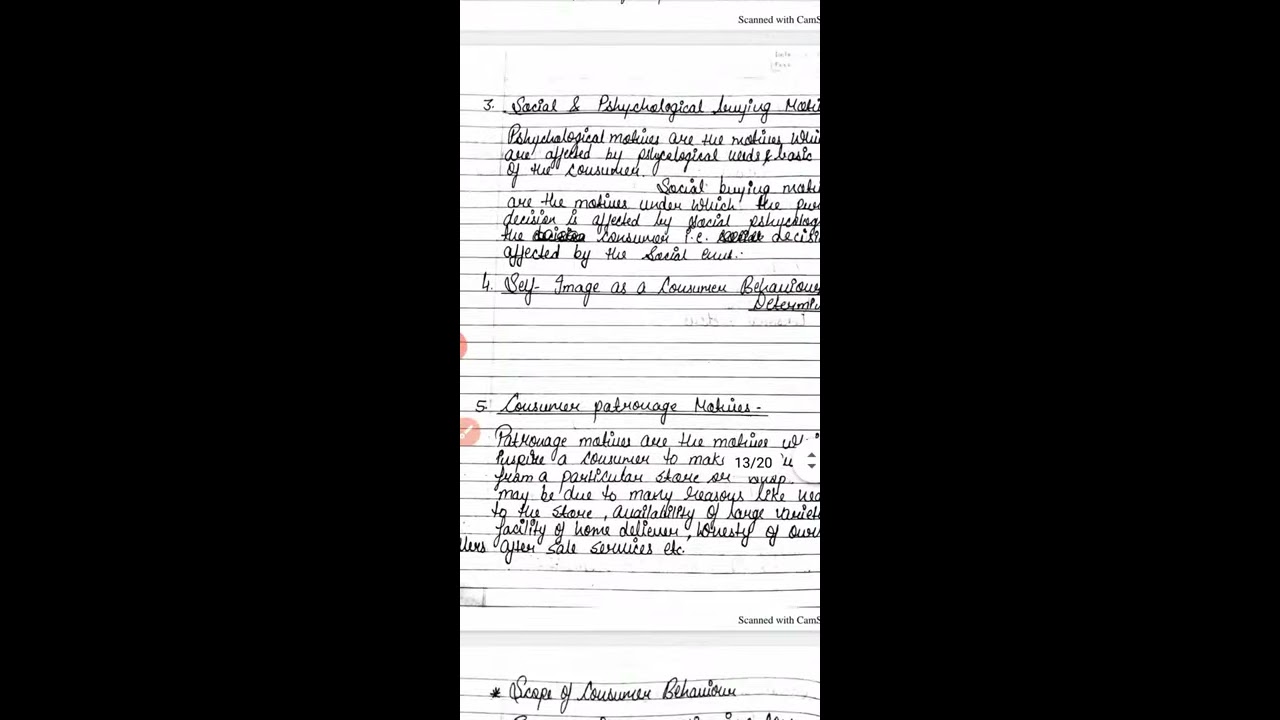 Scanned with CamS
Date
Page
3. Social & Pshychological buying Moti
Pshychological motives are the motives whi
are affected by psilycological needs & basic
of the consumer.
Social buying moti
are the motives under which the pur
decision is affected by social pshycholog
the consumer i.e. decisi
affected by the social envt.
4. Self- Image as a Consumer Behaviour
Determi
5. Consumer patronage Motives -
Patronage motives are the motives w
Inspire a consumer to mak 13/20
from a particular store or shop.
may be due to many reasons like nea
to the store, availability of large variet
facility of home deliever, honesty of own
llers after sale services etc.
Scanned with CamS
* Scope of Consumer Behaviour